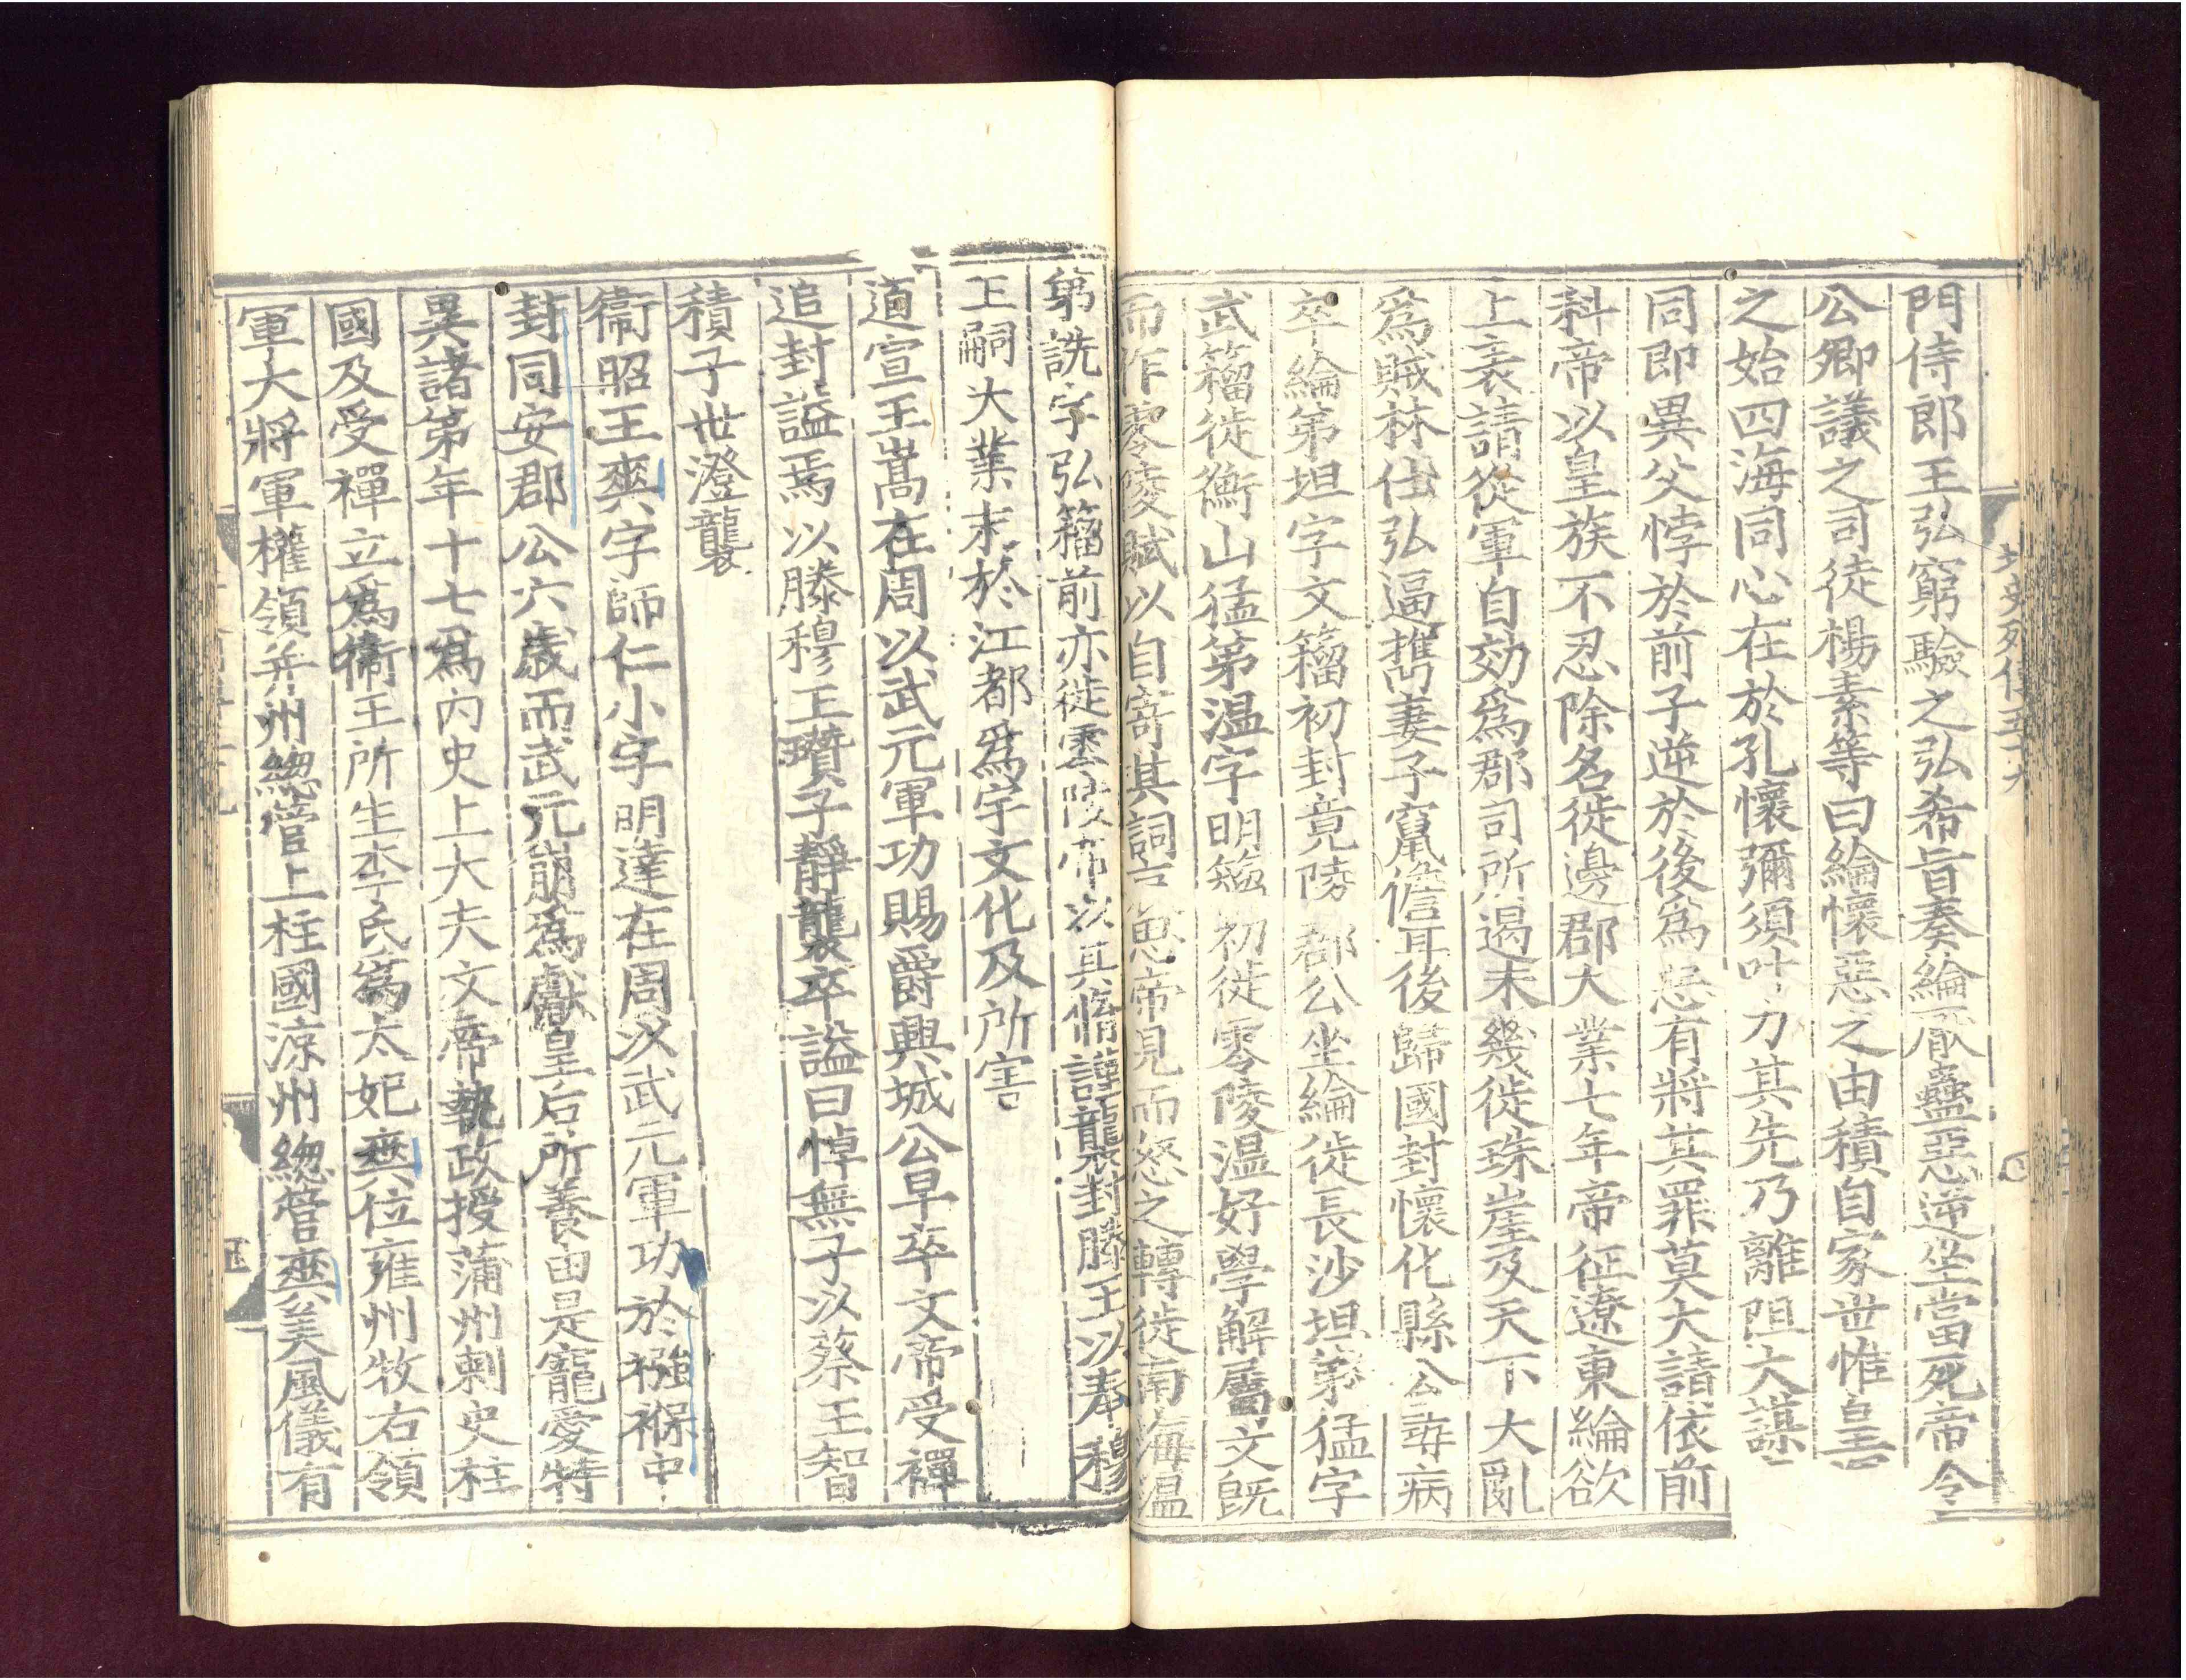 門侍郎王弘窮驗之弘希旨奏綸厭蠱惡逆坐當死帝令
公卿議之司徒楊素等曰綸懷惡之由積自家世惟皇
之始四海同心在於孔懷彌須叶力其先乃離阻大謀
同即異父悖於前子逆於後爲惡有將其罪莫大請依前
科帝以皇族不忍除名徙邊郡大業七年帝征遼東綸欲
上表請從軍自効爲郡司所遏未幾徙珠崖及天下大亂
爲賊林仕弘逼携妻子竄儋耳後歸國封懷化縣公尋病
卒綸弟坦字文籀初封竟陵郡公坐綸徙長沙坦弟猛字
武籀徙衡山猛弟温字明籀初徙零陵温好學解屬文旣
而作零陵賦以自寄其詞哀思帝見而怒之轉徙南海温
弟詵字弘籀前亦徙零陵帝以其脩謹襲封滕王以奉穆
王嗣大業末於江都爲宇文化及所害
道宣王嵩在周以武元軍功賜爵興城公早卒文帝受禪
追封謚焉以滕穆王瓚子靜襲卒謚曰悼無子以蔡王智
積子世澄襲
衞昭王爽字師仁小字明達在周以武元軍功於襁褓中
封同安郡公六歲而武元崩爲獻皇后所養由是寵愛特
異諸弟年十七爲内史上大夫文帝執政授蒲州刺史柱
國及受禪立爲衞王所生李氏爲太妃爽位雍州牧右領
軍大將軍權領并州總管上柱國涼州總管爽美風儀有
北史列傳五十九